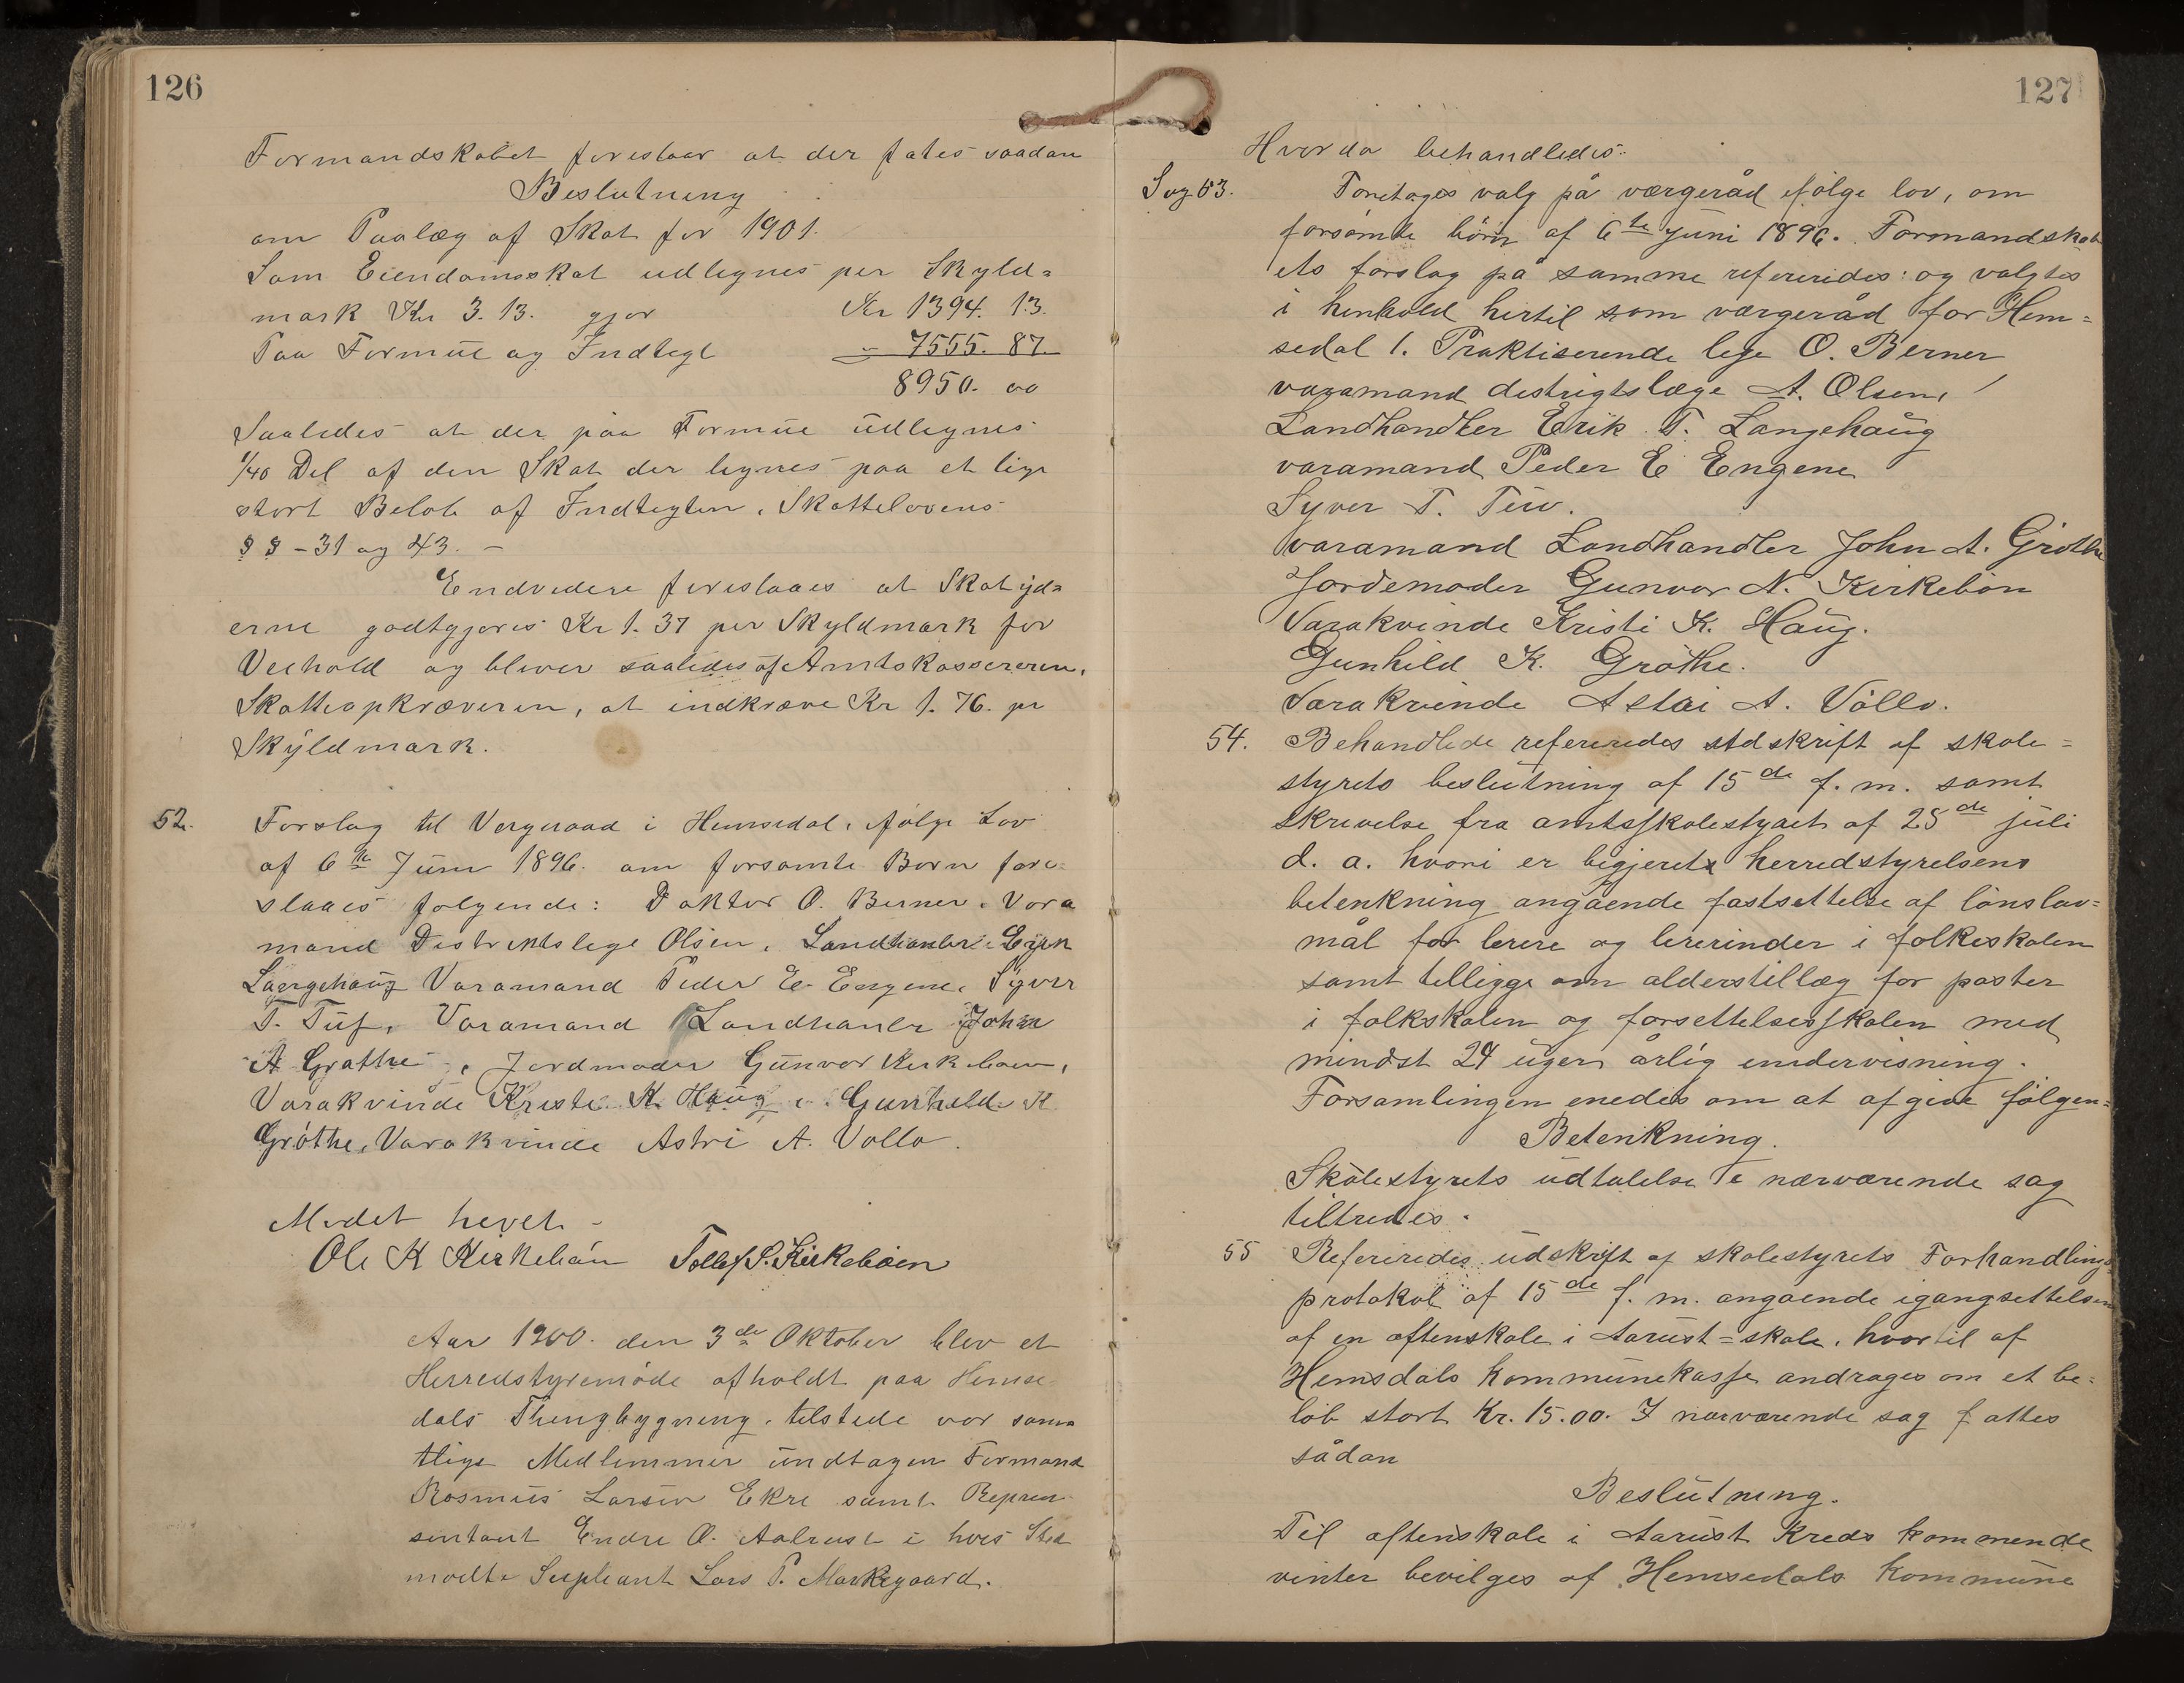 126
Formandskabet foreslaar at der fates saadan
Beslutning
om Paalæg af Skat for 1901.
Som Eiendomsskat udlegnes per Skyld=
mark Kr 3.13. gjor Kr 1394. 13.
Paa Formue og Indtegt - 7555. 87.
8950. 00
Saaledes at der paa Formue udlegnes
1/40 Del af den Skat der legnes paa et lige
stort Beløb af Indtegten, Skattelovens
§ § - 31 og 43. -
Endvidere foreslaaes at Skatyd=
erne godtgjøres Kr 1. 37 per Skyldmark for
Veihold og bliver saaledes af Amtskassereren,
Skatteopkræveren, at indkræve Kr 1. 76. pr
Skyldmark.
52. Forslag til Vergeraad i Hemsedal, ifølge Lov
af 6te Juni 1896. om forsømte Børn fore=
slaaes følgende: Doktor O. Berner. Vara
mand Distriktslege Olsen, Landhanler Erik
Langehaug Varamand Peder E. Engene, Syver
T. Tuf, Varamand Landhanler John
A Grøthe, Jordmoder Gunvor Kirkebøen,
Varakvinde Kriste K. Haug, Gunheld K
Grøthe, Varakvinde Astri A. Vøllo.
Mødet hevet -
Ole K Kirkebøn Tollef S. Kirkebøen
Aar 1900. den 3de Oktober blev et
Herredstyremøde afholdt paa Hemse
dals Thingbygning, tilstede var sam
tlige Medlemmer undtagen Formand
Rasmus Larsen Ekre samt Repren
sentant Endre O. Aalrust i hvis Sted
mødte Supleant Lars P. Markegaard.
127
Hvorda behandledes:
Sag 53. Foretages valg på værgeråd ifølge lov, om
forsømte børn af 6te juni 1896. Formandskab
ets forslag på samme refereredes: og valgtes
i henhold hertil som værgeråd for Hem=
sedal 1. Praktiserende lege O. Berner
varamand destrigtslæge A. Olsen,
Landhandler Erik T. Langehaug
varamand Peder E Engene
Syver T. Tuv.
varamand Landhandler John A. Grøthe
Jordemoder Gunvor N. Kirkebøn
Varakvinde Kristi K. Haug.
Gunhild K. Grøthe.
Varakvinde Astri A. Vøllo.
54. Behandlede refereredes udskrift af skole=
styrets beslutning af 15de f. m. samt
skrivelse fra amtsskolestyret af 25de juli
d. a. hvori er begjeret herredstyrelsens
betenkning angående fastsettelse af lønslav=
mål for lerere og lererinder i folkeskolen
samt tilligge om alderstillæg for poster
i folkskolen og forsettelsesskolen med
mindst 24 ugers årlig undervisning.
Forsamlingen enedes om at afgive følgen=
Betenkning.
Skolestyrets udtalelse i nærværende sag
tiltredes.
55 Refereredes udskrift af skolestyrets Forhandlings=
protokol af 15de f. m. angående igangsettelsen
af en aftenskole i Aarust=skole, hvortil af
Hemsdals kommunekasse andrages om et be=
løb stort Kr. 15.00. I nærværende sag fattes
sådan
Beslutning.
Til aftenskole i Aarust Kreds kommende
vinter bevilges af Hemsedals kommune